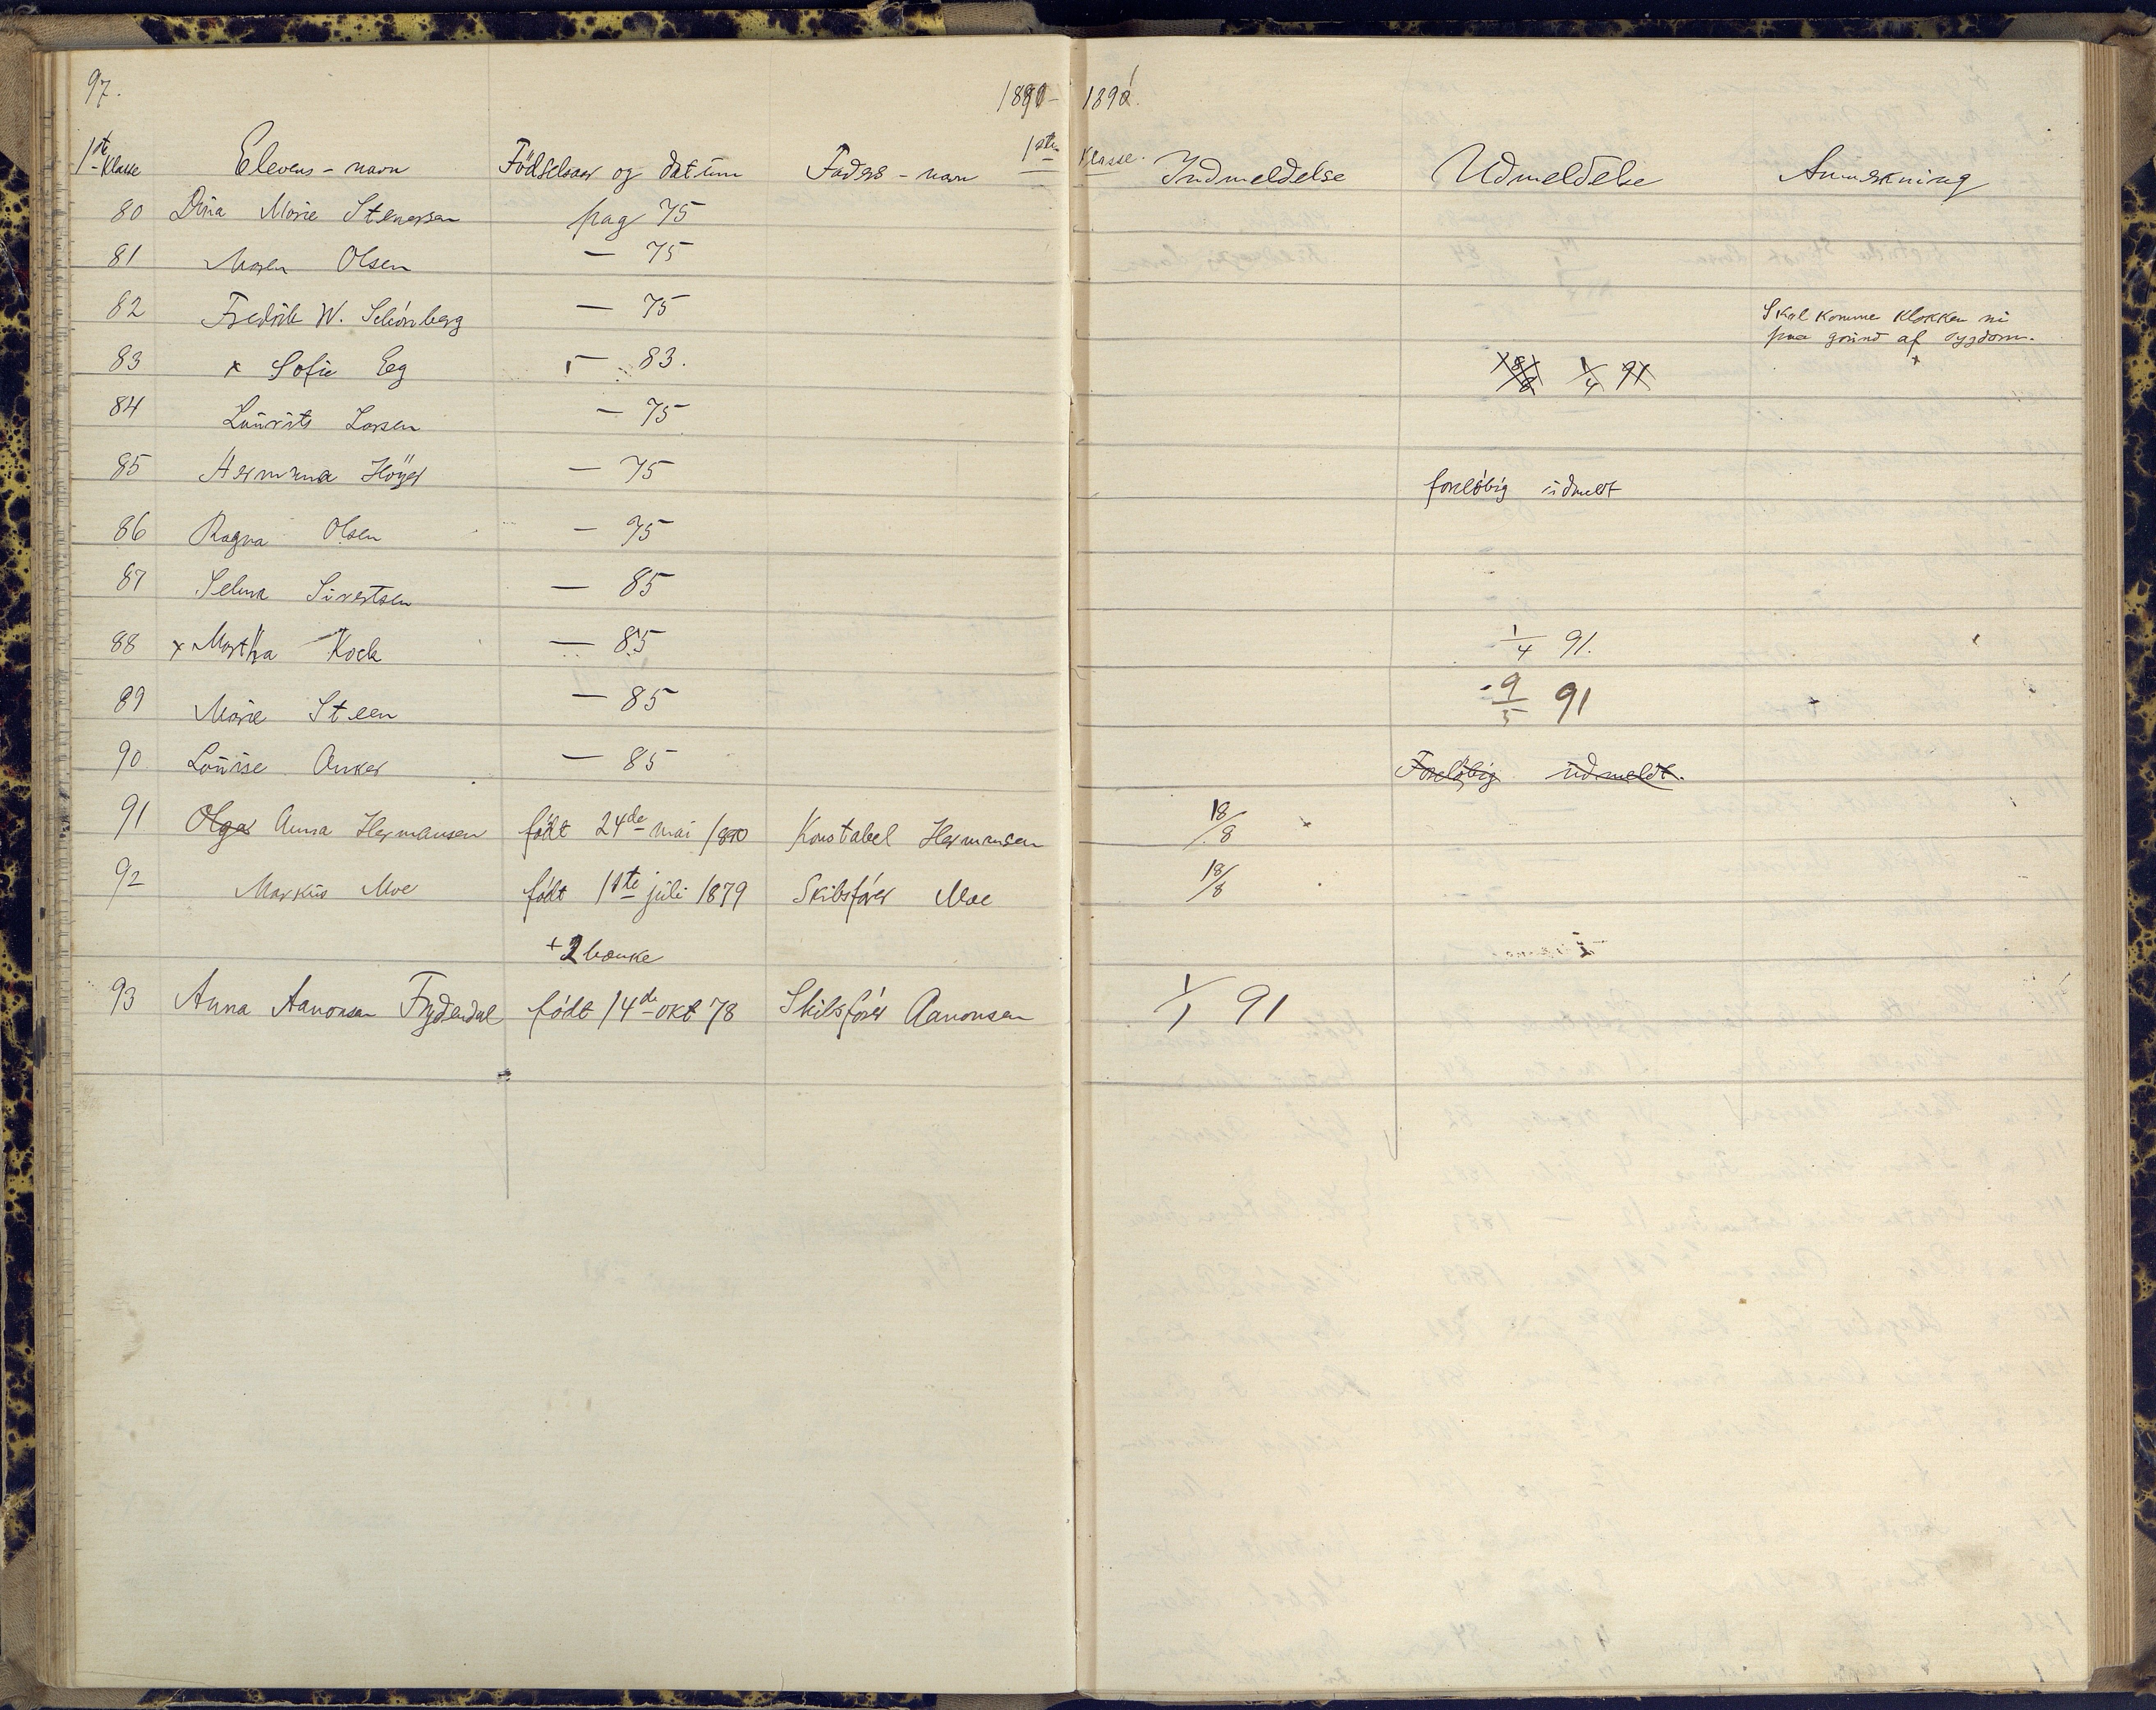 97. 1890- 1891.
1ste Klasse Elevens-navn Födselsaar og datum Faders-navn 1ste Klasse. Indmeldelse Udmeldelse Anmerkning
80 Dina Marie Stenersen pag 75
81 Maren Olsen — 75
82 Fredrik W. Schönberg — 75 Skal komme klokken ni
paa grund af sygdom.
83 x Sofie Eeg — 83. 1/4 91
84 Laurits Larsen — 75
85 Hermina Höyer — 75 foreløbig udmeldt
86 Ragna Olsen — 75
87 Selma Sivertsen — 85
88 x Martha Koch — 85 1/4 91.
89 Marie Steen — 85 9/5 91
90 Louise Anker — 85 Foreløbig udmeldt.
91 Olga Anna Hermansen født 24de mai 1880 Konstabel Hermansen 18/8
92 Markus Moe født 11te juli 1879 Skibsfører Moe 18/8
93 Anna Aanonsen Frydendal født 14de okt 78 Skibsfører Aanonsen 1/1 91